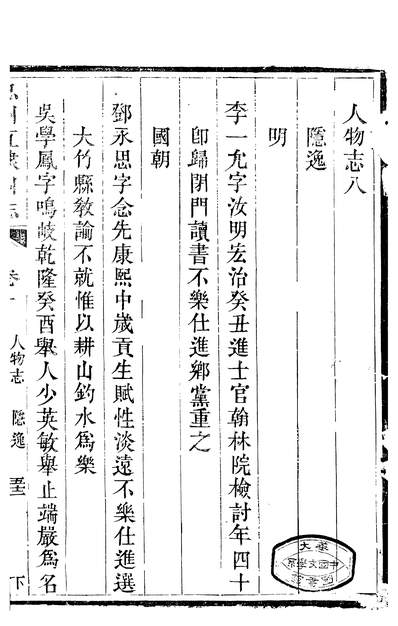 人物志八
隱逸
明
李一允字汝明宏治癸丑進士官翰林院檢討年四十
卽歸閉門讀書不樂仕進鄉黨重之
國朝
鄧永思字念先康熙中歲貢生賦性淡遠不樂仕進選
大竹縣教諭不就惟以耕山釣水爲樂
吳學鳳字鳴岐乾隆癸酉舉人少英敏舉止端嚴爲名
直隸州志
人物志
隱逸
下